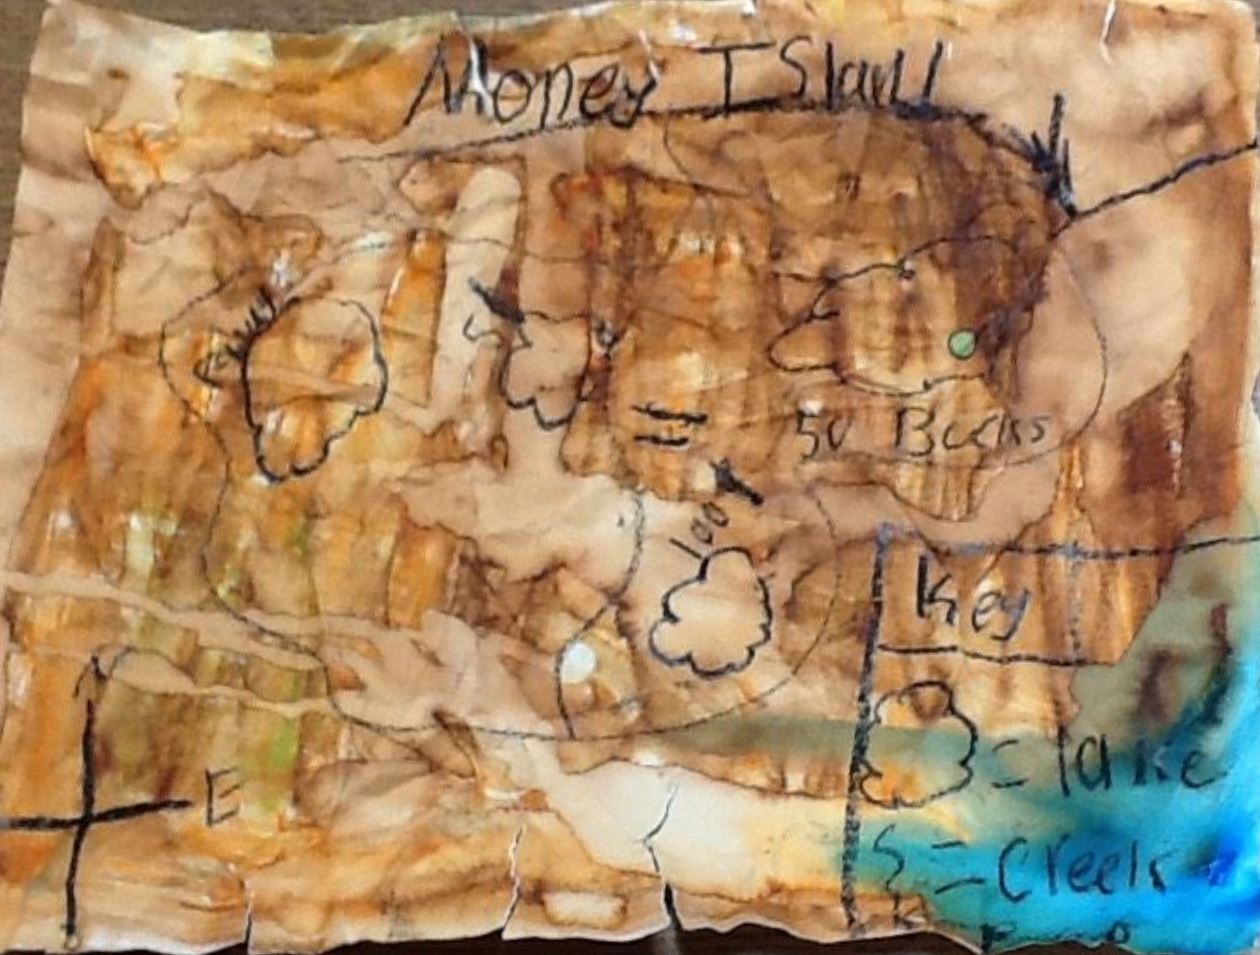 Money Island
50 Bucks
100
Key
= lake
E
= Creek